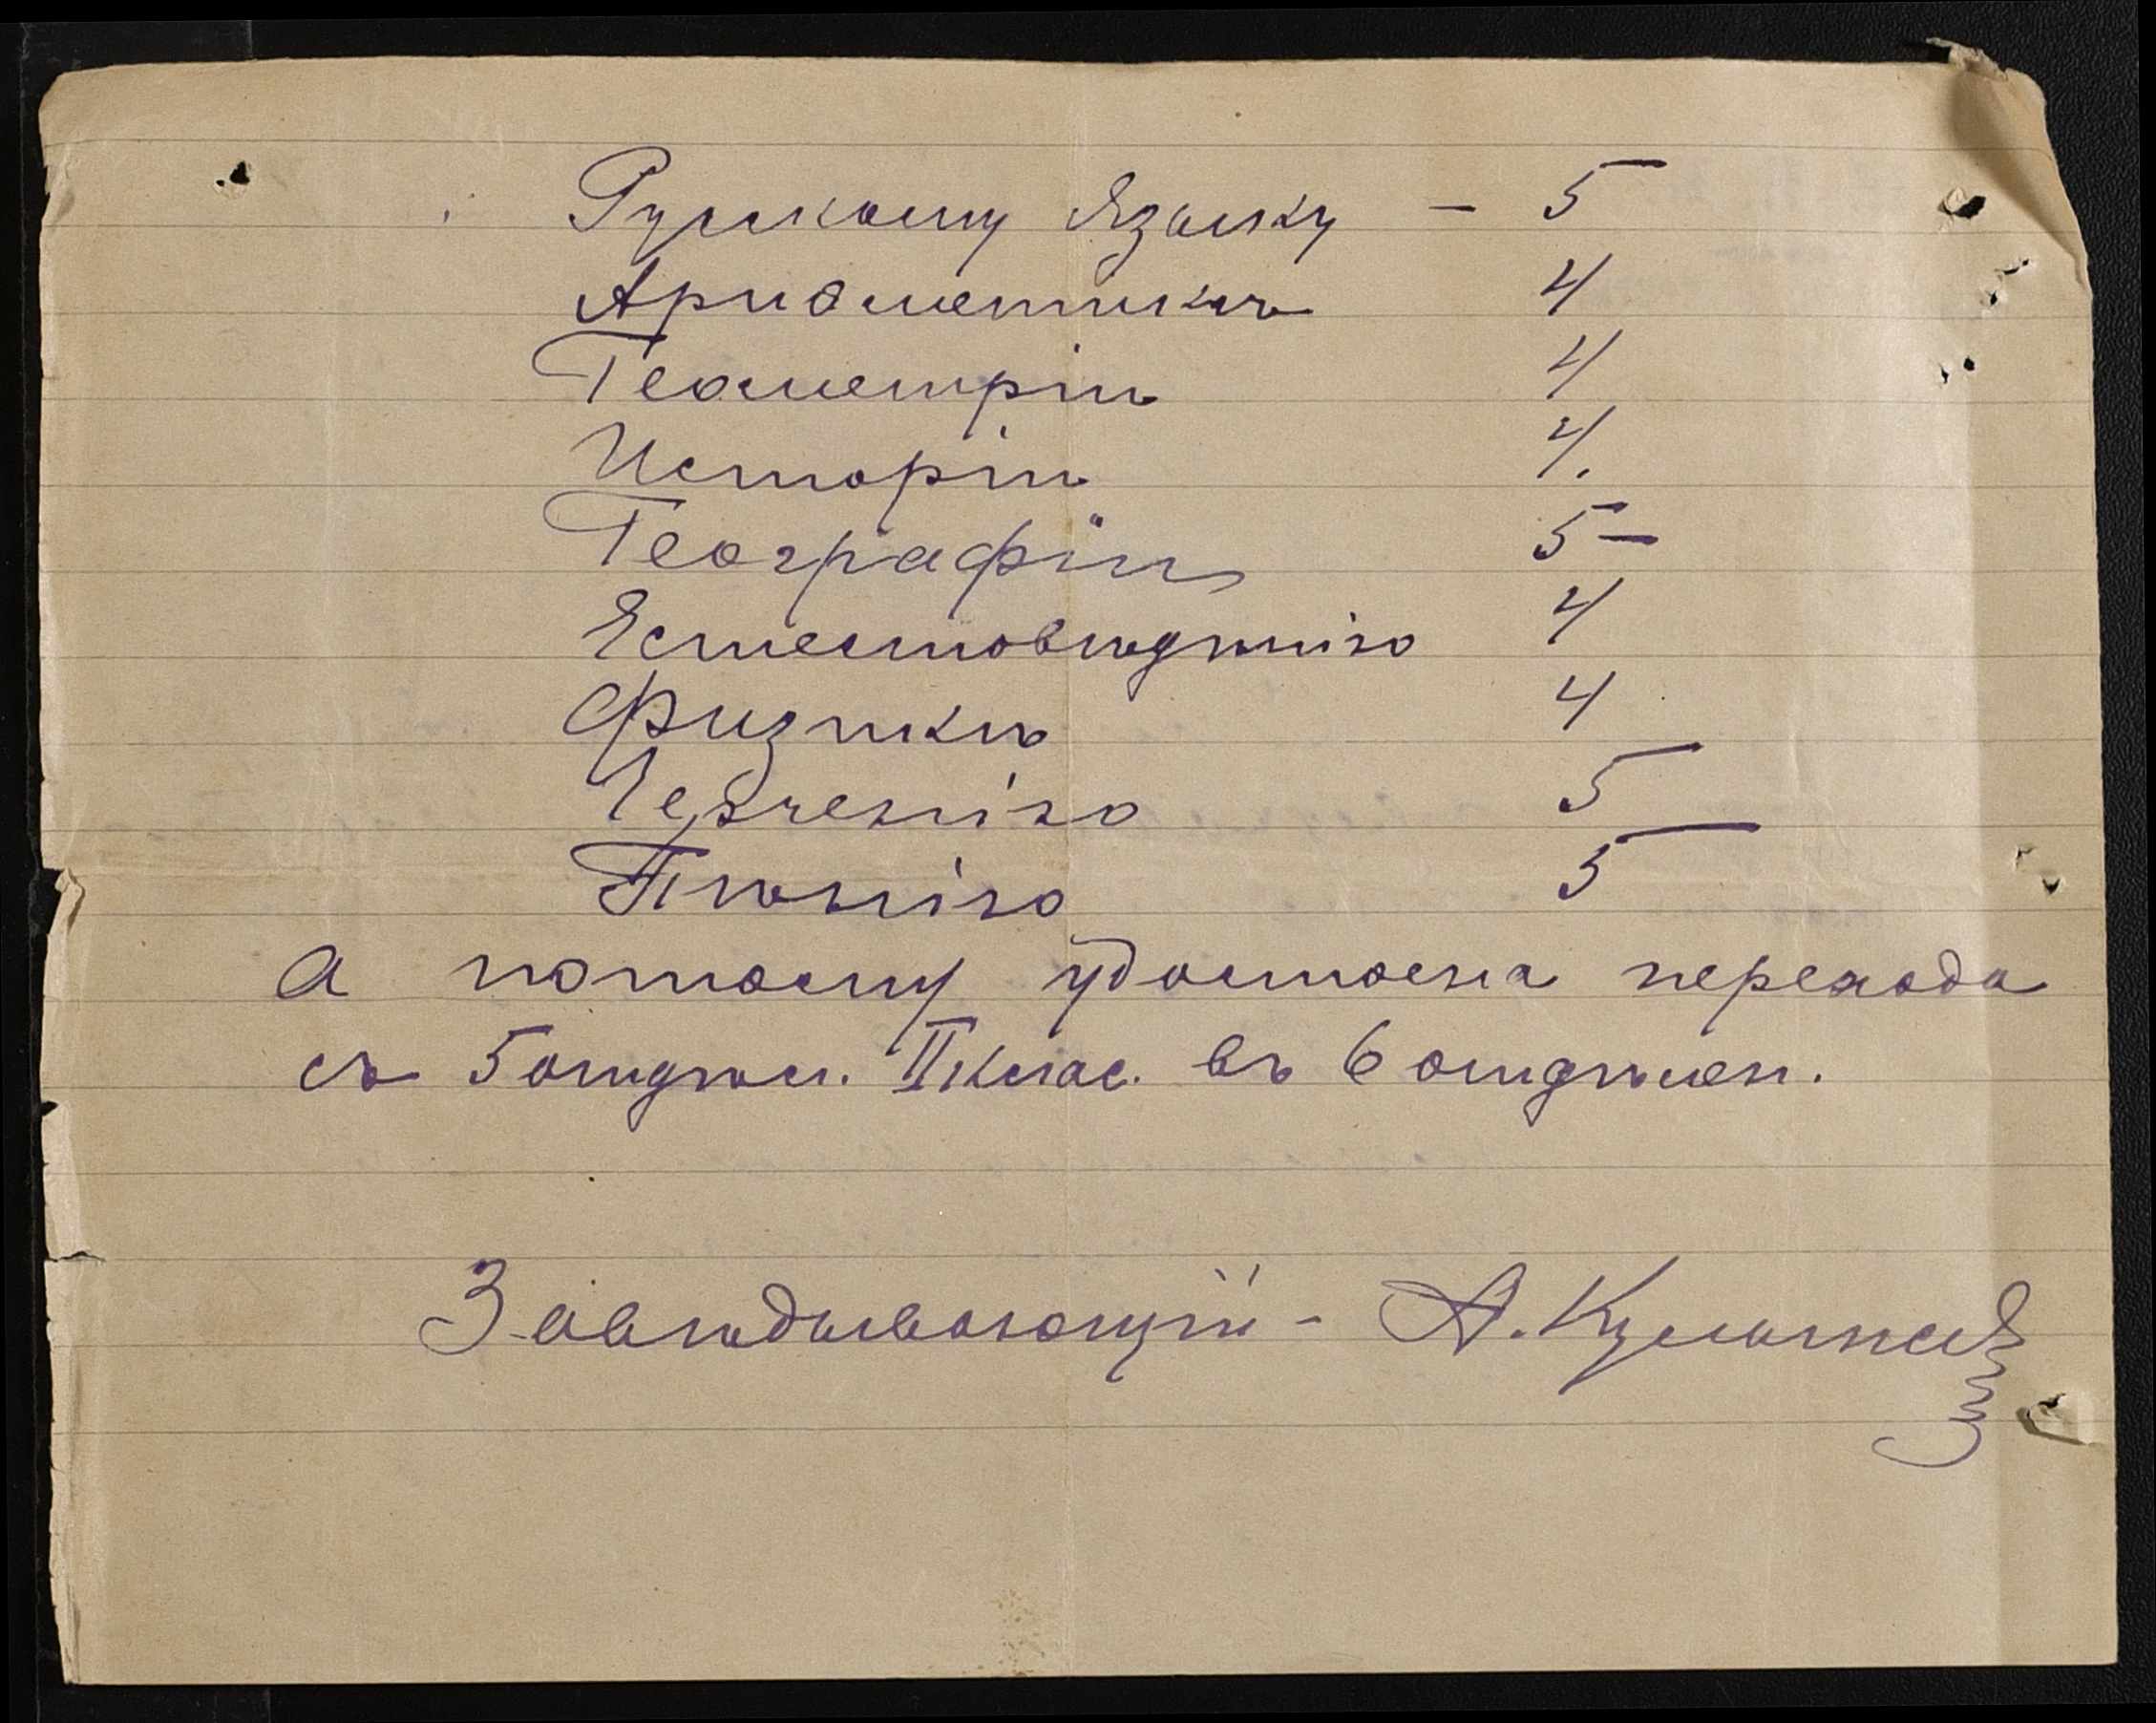 Русскому Языку — 5
Ариѳметикѣ 4
Геометріи 4
Исторіи 4.
Географіи 5 —
Естествовѣдѣнію 4
Физикѣ 4
Черченію 5
Пѣнію 5
а потому удостоена перехода
съ 5 отдѣл. II клас. въ 6 отдѣлен.
Завѣдывающій - А.